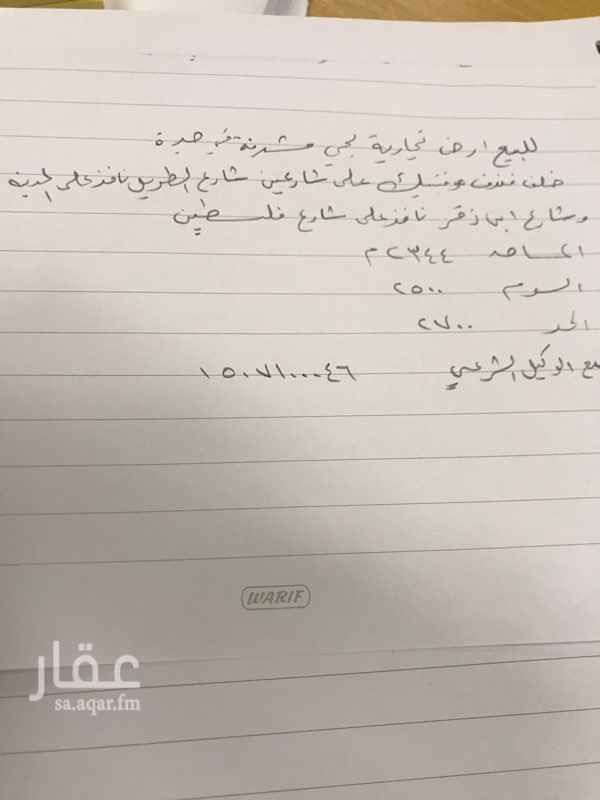 للبيع ارض تجارية بحي مشرفة في جدة
خلف فندق على شارعين شارع الطريل نافذ على المدينة
وشارع ابن ذقر نافذ على شارع فلسطين
المساحه ٢٣٤٤م
السوم ٢٥٠٠
الحد ٢٧٠٠
مع الوكيل الشرعي
WARIF
عقار
sa.aqar.fm